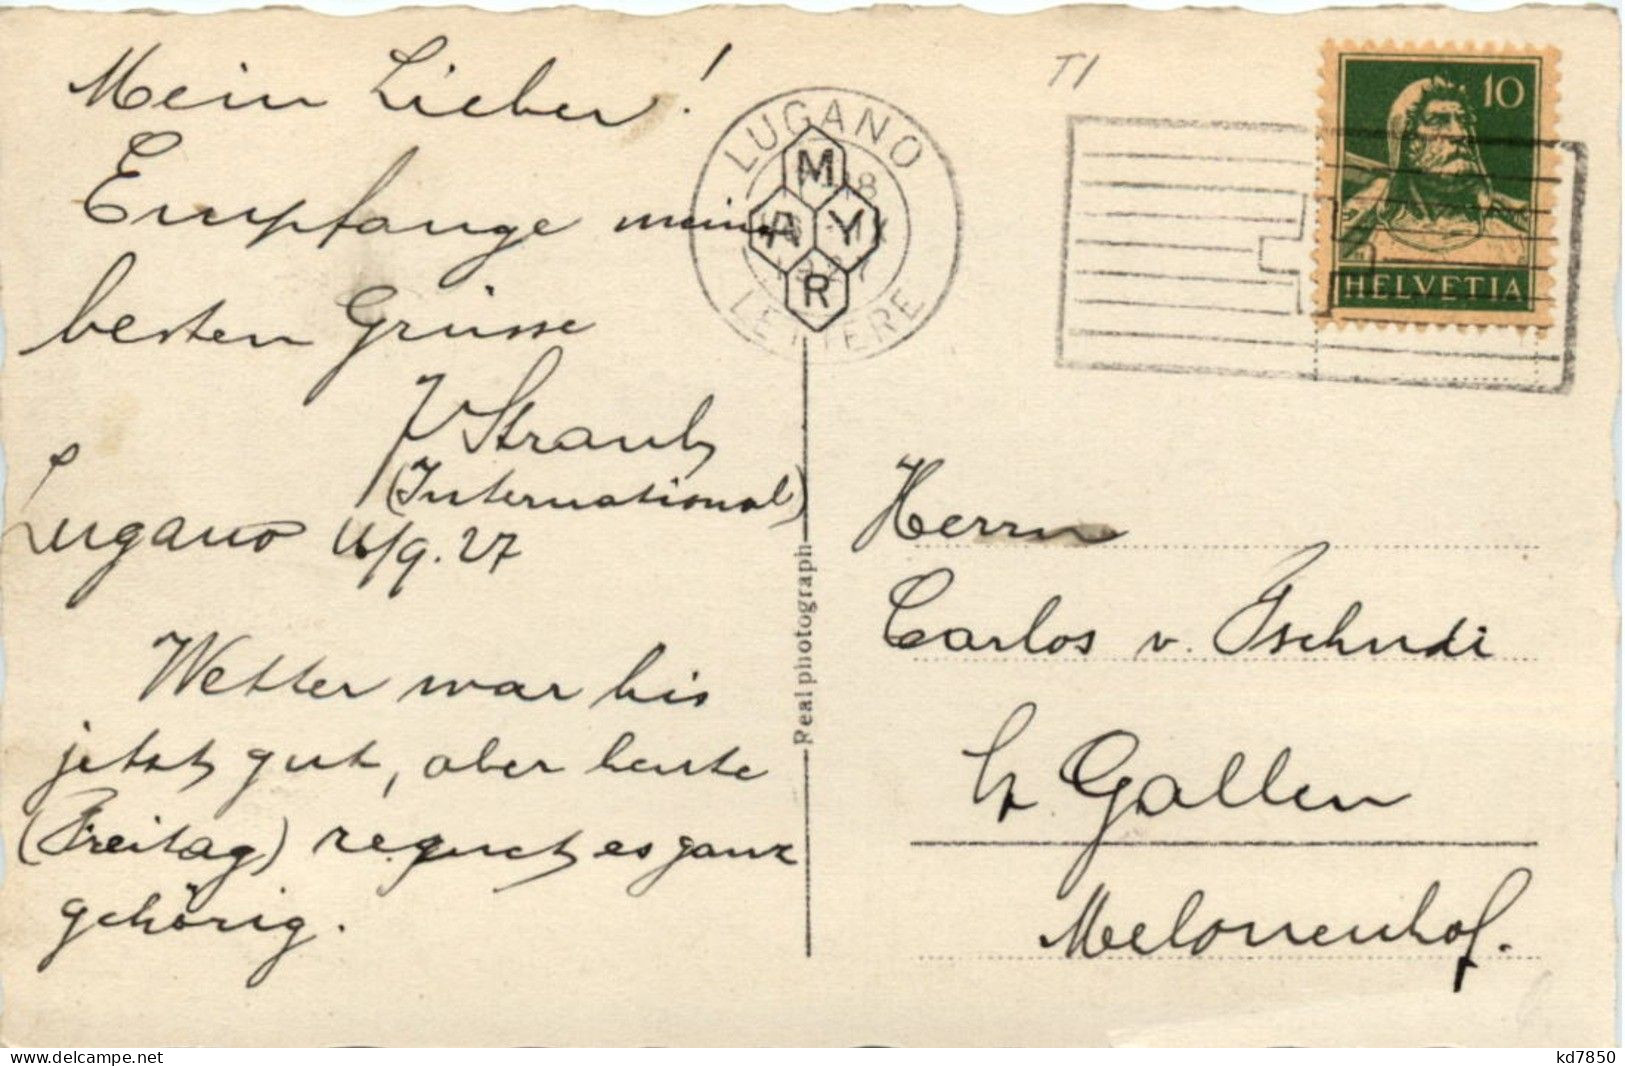 Mein Lieber!
Empfange meine
besten Grüsse
Straub
(International)
Lugano 16/9.27
Wetter war bis
jetzt gut, aber heute
(Freitag) regnet es ganz
gehörig.
LUGANO
LETTERE
M
A Y
R
Real photograph
T1
10
HELVETIA
Herrn
Carlos v. Tschudi
St. Gallen
Melonenhof.
www.delcampe.net
kd7850